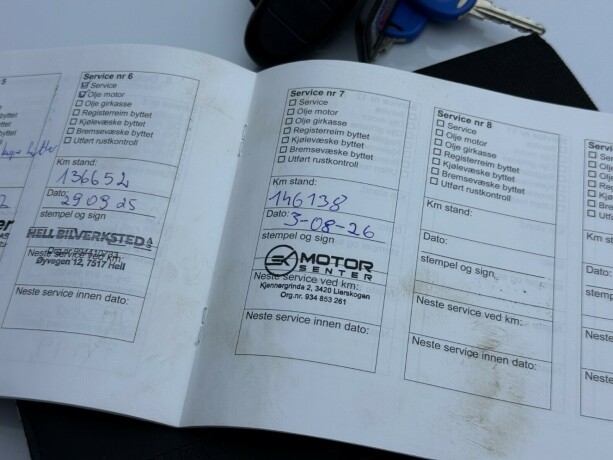 Service nr 6
Service
Olje motor
Olje girkasse
Registerreim byttet
Kjølevæske byttet
Bremsevæske byttet
Utført rustkontroll
Km stand:
136652
Dato:
stempel og sign
HELL BILVERKSTED AS
Neste service ved km:
Øyvegen 12, 7517 Hell
Neste service innen dato:
Service nr 7
Service
Olje motor
Olje girkasse
Registerreim byttet
Kjølevæske byttet
Bremsevæske byttet
Utført rustkontroll
Km stand:
146138
Dato: 3-08-26
stempel og sign
MOTOR
SENTER
Neste service ved km:
Kjennergrinda 2, 3420 Lierskogen
Org.nr. 934 853 261
Neste service innen dato:
Service nr 8
Service
Olje motor
Olje girkasse
Registerreim byttet
Kjølevæske byttet
Bremsevæske byttet
Utført rustkontroll
Km stand:
Dato:
stempel og sign
Neste service ved km:
Neste service innen dato: